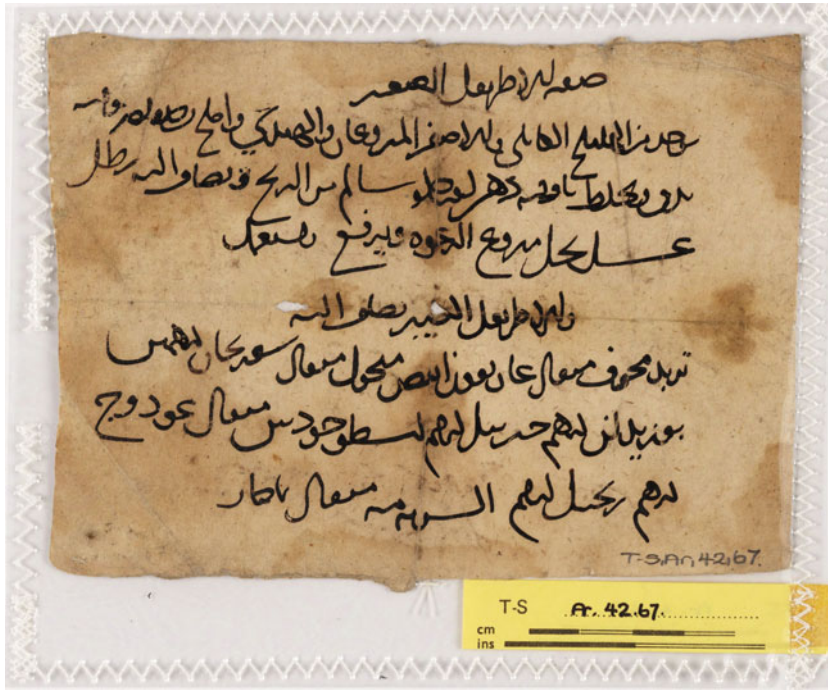 صفه الاطريفل الصغير
يوخذ من اهليلج الكابلي والاصفر المنزوعان والهندي واملج
يدق ويخلط بدهن لوز حلو سالم من الريح ويضاف اليه رطل
عسل نحل منزوع الرغوه ويرفع يستعمل
والاطريفل الكبير يضاف اليه
تربد مجوف مثقال غاريقون ابيض منخول مثقال درهمين
بوزيدان درهم درهم اسطوخودس مثقال عود وج
درهم زنجبيل درهم الشربه منه مثقال بماحار
T-S.Ar.42.67.
T-S Ar. 42.67.
cm
ins